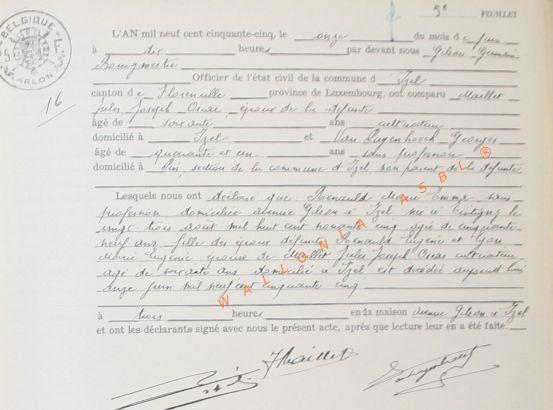 BELGIQUE
ARLON
5e FEUILLET
16
L'AN mil neuf cent cinquante-cinq, le onze du mois de juin
à dix heures par devant nous Gilson Germain
Bourgmestre
Officier de l'état civil de la commune d'Izel
canton de Florenville province de Luxembourg, ont comparu Maillet
Jules Joseph Oscar, époux de la défunte
âgé de soixante ans cultivateur
domicilié à Izel et Georges
âgé de quarante et un ans sans profession
domicilié à Pin, section de la commune d'Izel non parent de la défunte
Lesquels nous ont déclaré que Renauld Marie Emma sans
profession domiciliée avenue Gilson à Izel née à le
vingt trois août mil huit cent nonante cinq âgée de cinquante-
neuf ans fille des époux défunts Renauld Eugénie et
Marie Eugénie épouse de Maillet Jules Joseph Oscar cultivateur
âgé de soixante ans domicilié à Izel est décédée aujourd'hui
onze juin mil neuf cent cinquante cinq
à trois heures en la maison avenue Gilson à Izel
et ont les déclarants signé avec nous le présent acte, après que lecture leur en a été faite.
JMaillet
WALLONIA ASBL ®